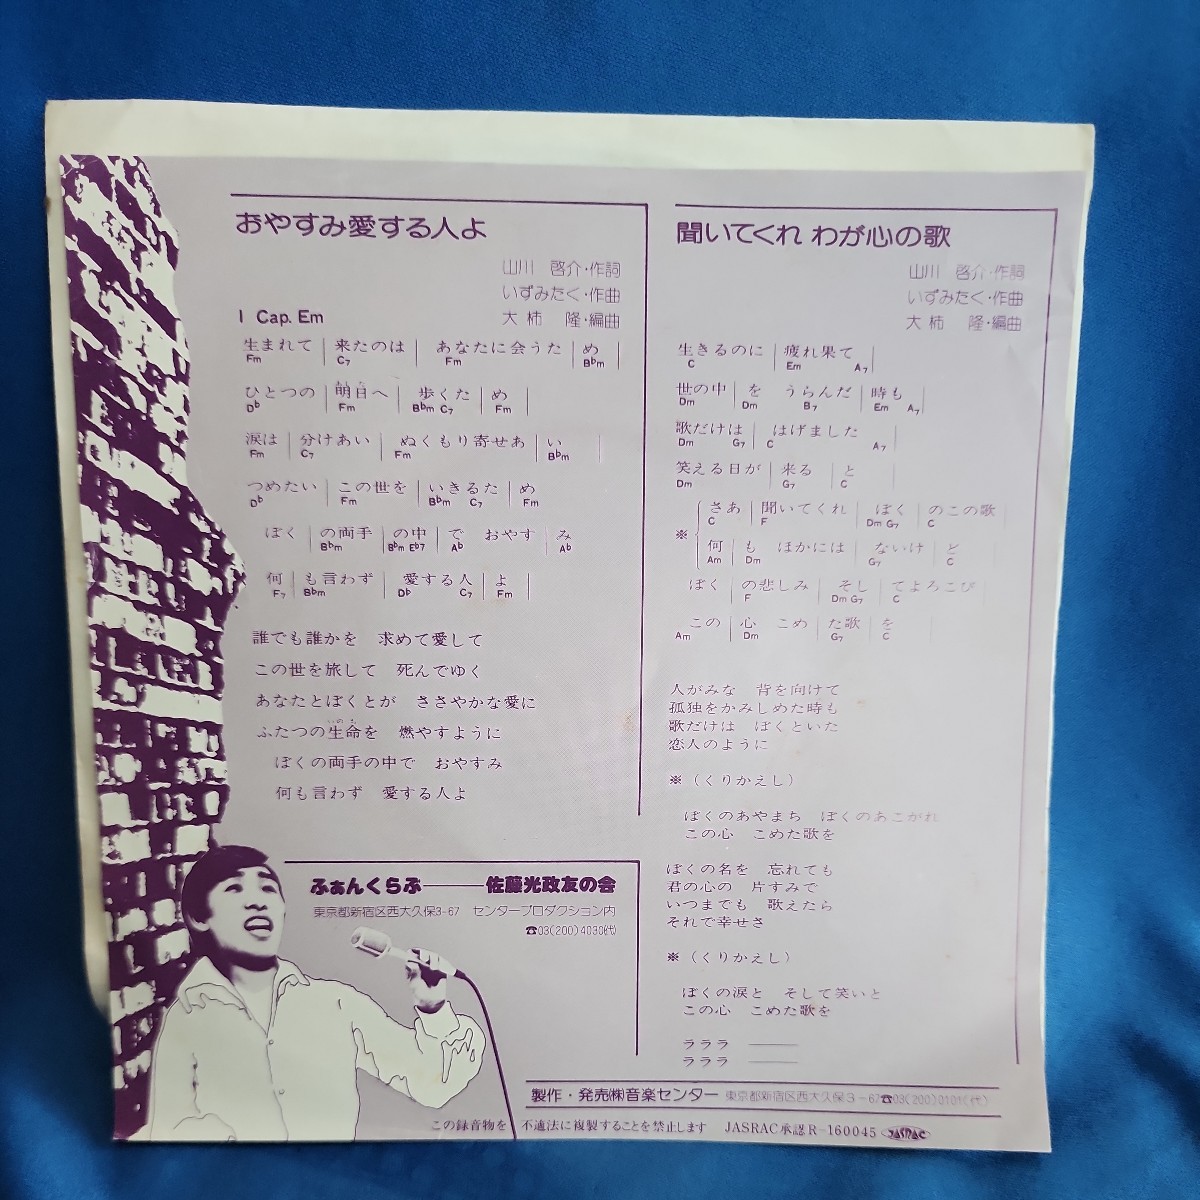 おやすみ愛する人よ
山川 啓介・作詞
いずみたく・作曲
大柿 隆・編曲
1 Cap. Em
生まれて｜来たのは｜あなたに会うため｜め｜
Fm C7 Fm B♭m
ひとつの｜明日へ｜歩くた｜め｜
D♭ Fm B♭m C7 Fm
涙は｜分けあい｜ぬくもり寄せあ｜い｜
Fm C7 Fm B♭m
つめたい｜この世を｜いきるた｜め
D♭ Fm B♭m C7 Fm
ぼく｜の両手｜の中｜で おやす｜み
B♭m B♭m E♭7 A♭ A♭
何｜も言わず｜愛する人｜よ｜
F7 B♭m D♭ C7 Fm
誰でも誰かを 求めて愛して
この世を旅して 死んでゆく
あなたとぼくとが ささやかな愛に
いのち
ふたつの生命を 燃やすように
ぼくの両手の中で おやすみ
何も言わず 愛する人よ
ふぁんくらぶ――佐藤光政友の会
東京都新宿区西大久保3-67 センタープロダクション内
☎03(200)4030㈹
聞いてくれ わが心の歌
山川 啓介・作詞
いずみたく・作曲
大柿 隆・編曲
生きるのに｜疲れ果て｜
C Em A7
世の中｜を うらんだ｜時も｜
Dm Dm B7 Em A7
歌だけは｜はげました｜
Dm G7 C A7
笑える日が｜来る｜と｜
Dm G7 C
※
さあ｜聞いてくれ｜ぼく｜のこの歌｜
C F Dm G7 C
何｜も ほかには｜ないけ｜ど
Am Dm G7 C
ぼく｜の悲しみ｜そし｜てよろこび｜
F Dm G7 C
この｜心 こめ｜た歌｜を｜
Am Dm G7 C
人がみな 背を向けて
孤独をかみしめた時も
歌だけは ぼくといた
恋人のように
※（くりかえし）
ぼくのあやまち ぼくのあこがれ
この心 こめた歌を
ぼくの名を 忘れても
君の心の 片すみで
いつまでも 歌えたら
それで幸せさ
※（くりかえし）
ぼくの涙と そして笑いと
この心 こめた歌を
ラララ ――
ラララ ――
製作・発売㈱音楽センター 東京都新宿区西大久保3-67☎03(200)0101(代)
この録音物を 不適法に複製することを禁止します JASRAC承認R-160045 JASRAC